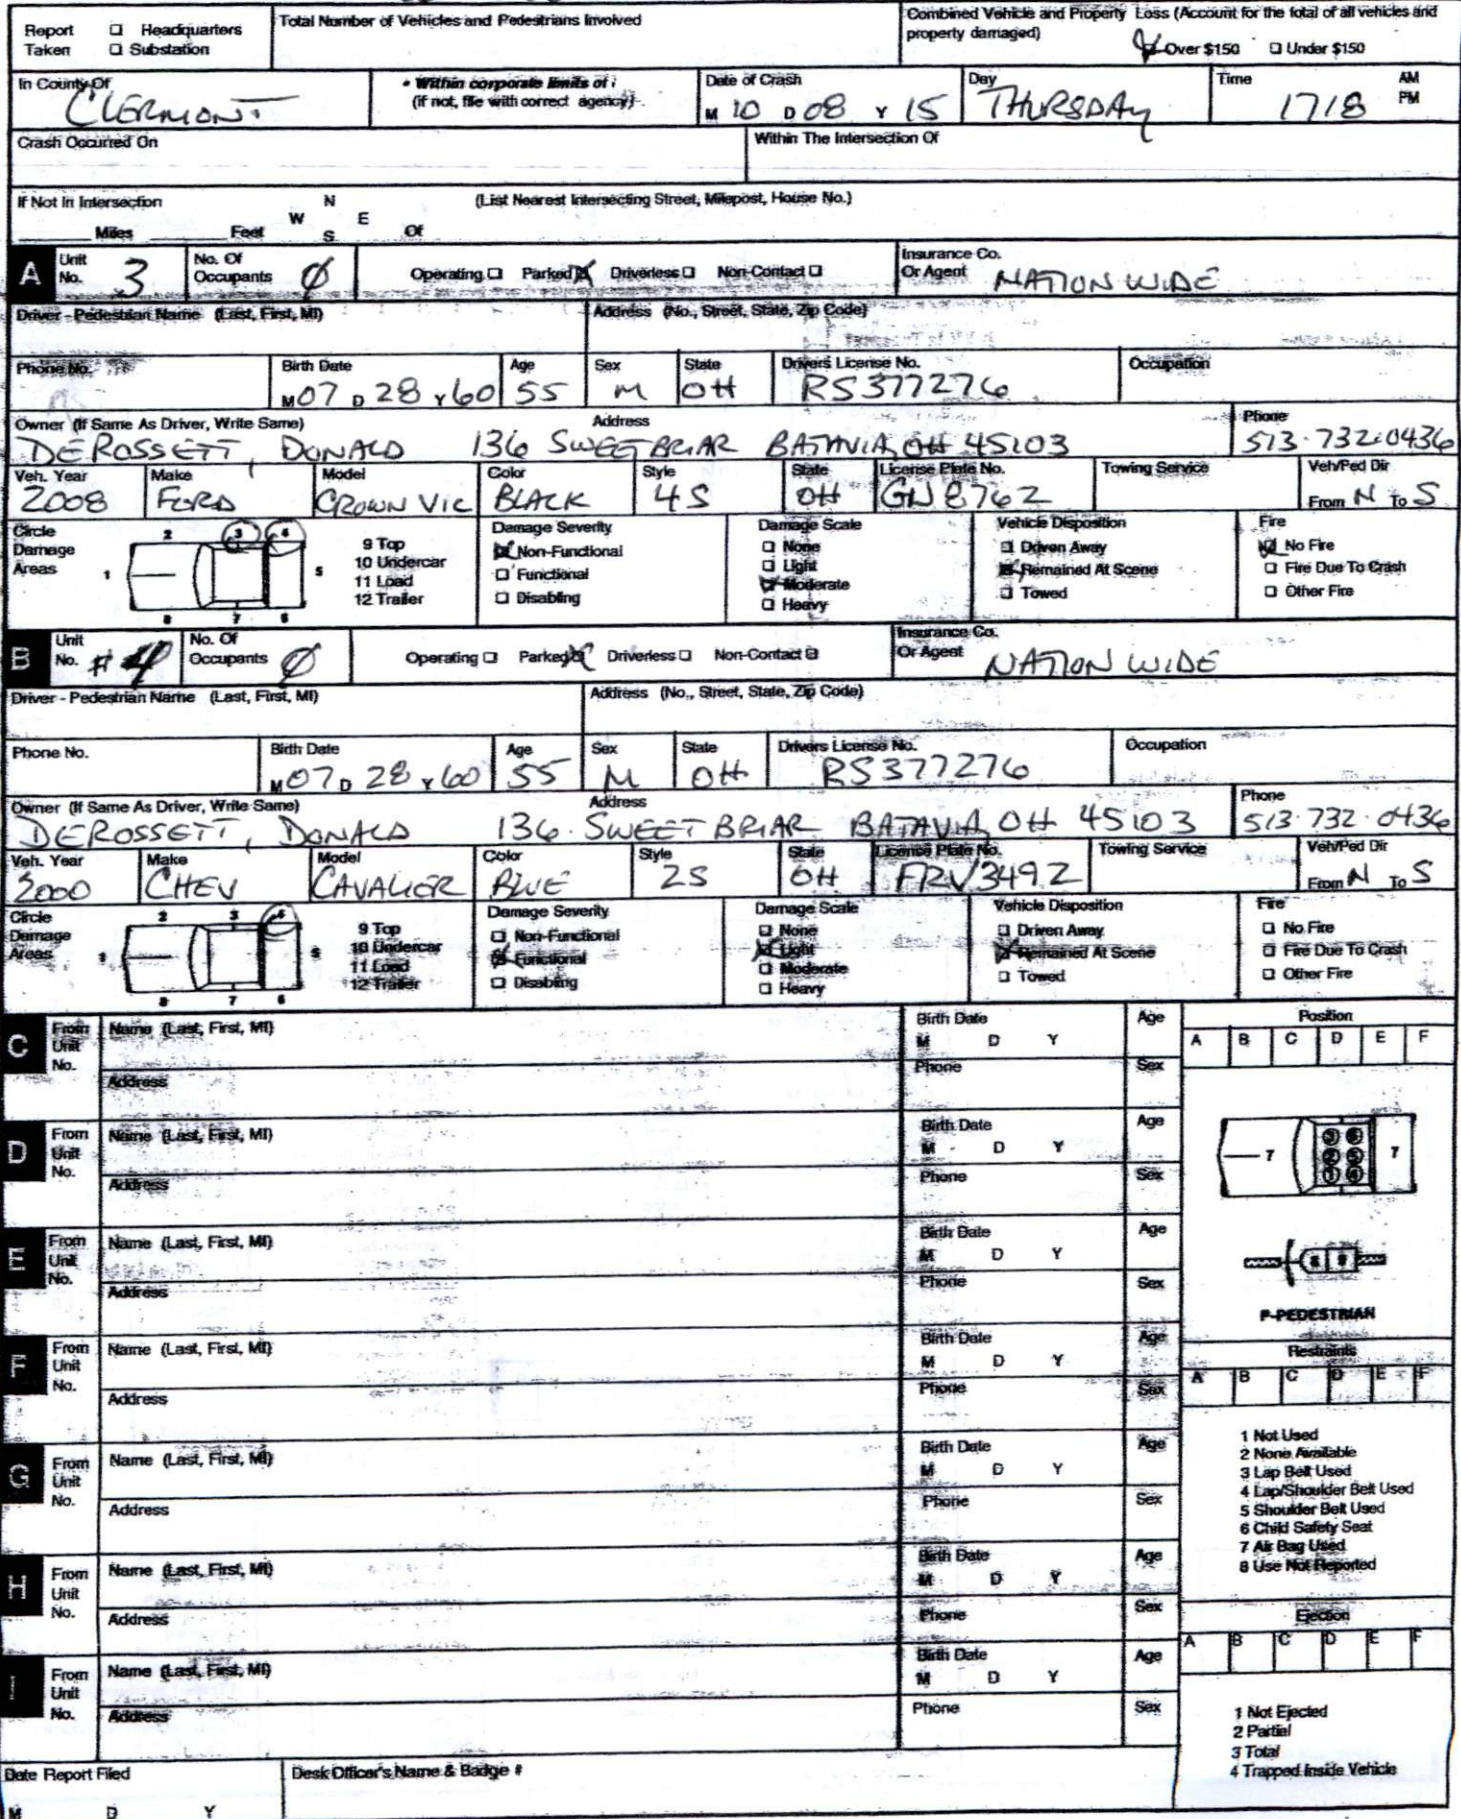 Report ☐ Headquarters
Taken ☐ Substation
Total Number of Vehicles and Pedestrians Involved
Combined Vehicle and Property Loss (Account for the total of all vehicles and
property damaged)
☒ Over $150 ☐ Under $150
In County Of
CLERMONT
• Within corporate limits of
(if not, file with correct agency)
Date of Crash
M 10 D 08 Y 15
Day
THURSDAY
Time
1718
AM
PM
Crash Occurred On
Within The Intersection Of
If Not In Intersection
(List Nearest Intersecting Street, Milepost, House No.)
Miles Feet N W E S Of
A Unit No. 3
No. Of Occupants Ø
Operating ☐ Parked ☒ Driverless ☐ Non-Contact ☐
Insurance Co. Or Agent NATIONWIDE
Driver - Pedestrian Name (Last, First, MI)
Address (No., Street, State, Zip Code)
Phone No.
Birth Date M 07 D 28 Y 60
Age 55
Sex M
State OH
Drivers License No. RS377276
Occupation
Owner (If Same As Driver, Write Same) Address Phone
DEROSSETT, DONALD 136 SWEETBRIAR BATAVIA, OH 45103 513.732.0436
Veh. Year 2008
Make FORD
Model CROWN VIC
Color BLACK
Style 4S
State OH
License Plate No. GN8762
Towing Service
Veh/Ped Dir From N To S
Circle Damage Areas
1 2 3 4 5 6 7 8
9 Top
10 Undercar
11 Load
12 Trailer
Damage Severity
☒ Non-Functional
☐ Functional
☐ Disabling
Damage Scale
☐ None
☐ Light
☒ Moderate
☐ Heavy
Vehicle Disposition
☐ Driven Away
☒ Remained At Scene
☐ Towed
Fire
☒ No Fire
☐ Fire Due To Crash
☐ Other Fire
B Unit No. #4
No. Of Occupants Ø
Operating ☐ Parked ☒ Driverless ☐ Non-Contact ☐
Insurance Co. Or Agent NATIONWIDE
Driver - Pedestrian Name (Last, First, MI)
Address (No., Street, State, Zip Code)
Phone No.
Birth Date M 07 D 28 Y 60
Age 55
Sex M
State OH
Drivers License No. RS377276
Occupation
Owner (If Same As Driver, Write Same) Address Phone
DEROSSETT, DONALD 136. SWEETBRIAR BATAVIA, OH 45103 513.732.0436
Veh. Year 2000
Make CHEV
Model CAVALIER
Color BLUE
Style 2S
State OH
License Plate No. FRV3492
Towing Service
Veh/Ped Dir From N To S
Circle Damage Areas
1 2 3 4 5 6 7 8
9 Top
10 Undercar
11 Load
12 Trailer
Damage Severity
☐ Non-Functional
☒ Functional
☐ Disabling
Damage Scale
☐ None
☒ Light
☐ Moderate
☐ Heavy
Vehicle Disposition
☐ Driven Away
☒ Remained At Scene
☐ Towed
Fire
☐ No Fire
☐ Fire Due To Crash
☐ Other Fire
C From Unit No. Name (Last, First, MI) Birth Date M D Y Age
Address Phone Sex
D From Unit No. Name (Last, First, MI) Birth Date M D Y Age
Address Phone Sex
E From Unit No. Name (Last, First, MI) Birth Date M D Y Age
Address Phone Sex
F From Unit No. Name (Last, First, MI) Birth Date M D Y Age
Address Phone Sex
G From Unit No. Name (Last, First, MI) Birth Date M D Y Age
Address Phone Sex
H From Unit No. Name (Last, First, MI) Birth Date M D Y Age
Address Phone Sex
I From Unit No. Name (Last, First, MI) Birth Date M D Y Age
Address Phone Sex
Position
A B C D E F
7 3 6 7
2 5
1 4
8 9
P-PEDESTRIAN
Restraints
A B C D E F
1 Not Used
2 None Available
3 Lap Belt Used
4 Lap/Shoulder Belt Used
5 Shoulder Belt Used
6 Child Safety Seat
7 Air Bag Used
8 Use Not Reported
Ejection
A B C D E F
1 Not Ejected
2 Partial
3 Total
4 Trapped Inside Vehicle
Date Report Filed
M D Y
Desk Officer's Name & Badge #